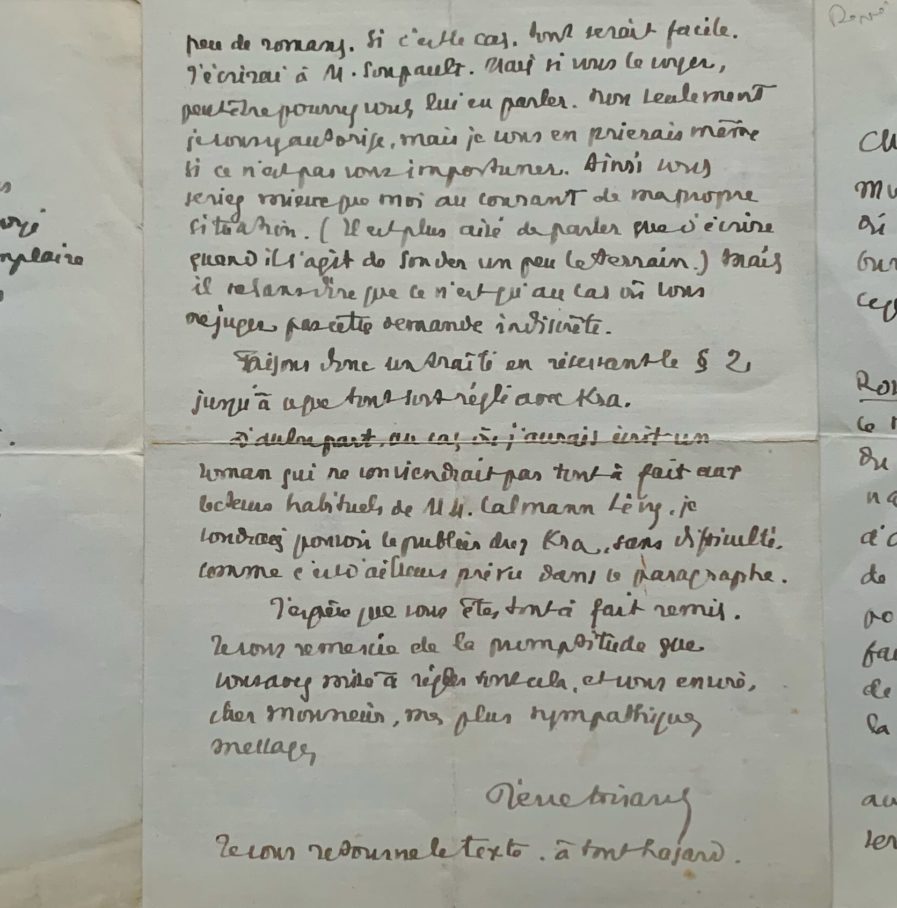 peu de romans. Si c'est le cas. Tout serait facile.
J'écrirai à M. Soupault. Mais si vous le voyez,
peut être pourrez vous lui en parler. Non seulement
je vous y autorise, mais je vous en prierais même
si ce n'est pas vous importuner. Ainsi vous
seriez mieux que moi au courant de ma propre
situation. (Il est plus aisé de parler que d'écrire
quand il s'agit de sonder un peu le terrain.) Mais
il va sans dire que ce n'est qu'au cas où vous
ne jugez pas cette demande indiscrète.
Faisons donc un traité en réservant le § 2,
jusqu'à ce que tout soit réglé avec Kra.
D'autre part, au cas où j'aurais écrit un
roman qui ne conviendrait pas tout à fait aux
lecteurs habituels de MM. Calmann Lévy, je
voudrais pouvoir le publier chez Kra, sans difficulté.
comme c'est d'ailleurs prévu dans le paragraphe.
J'espère que vous êtes tout à fait remis.
Je vous remercie de la promptitude que
vous avez mise à régler tout cela, et vous envoie,
cher Monsieur, mes plus sympathiques
messages
Je vous retourne le texte. à tout hasard.
mplaire
de
la